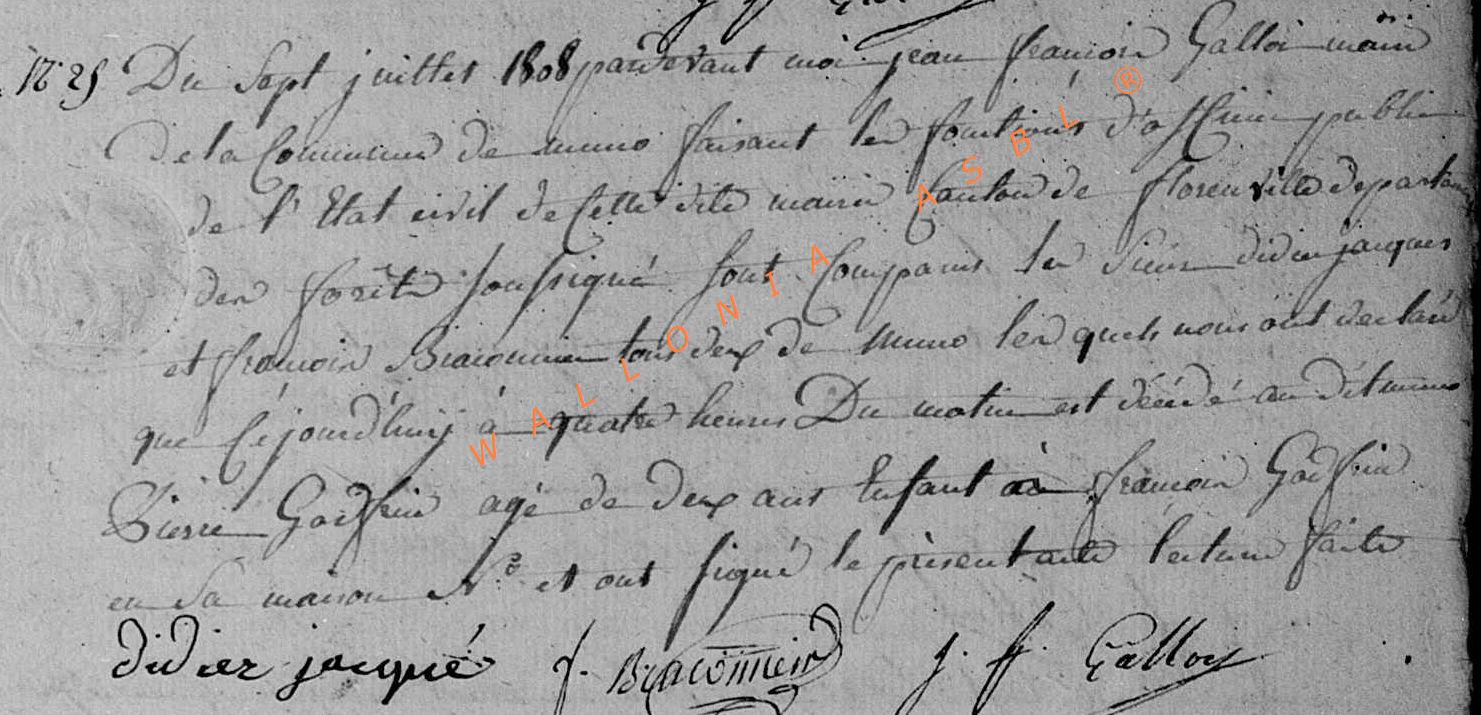 N° 25 Du Sept juillet 1808 pardevant moi jean françois Galloi maire
de la Commune de muno faisant les fonctions d'officier public
de l'Etat civil de Cette dite mairie Canton de florenville departem
des forêts soussigné sont Comparus les Sieurs didier jacques
et françois Braconnier tous deux de muno les quels nous ont declaré
que Cejourd'huij à quatre heures Du matin est décédé au dit muno
Pierre Godfrin agé de deux ans Enfant à françois Godfrin
en sa maison N° et ont signé le présent acte lecture faite
didier jacqué f. Braconnier j. f. Galloy
WALLONIA ASBL ®